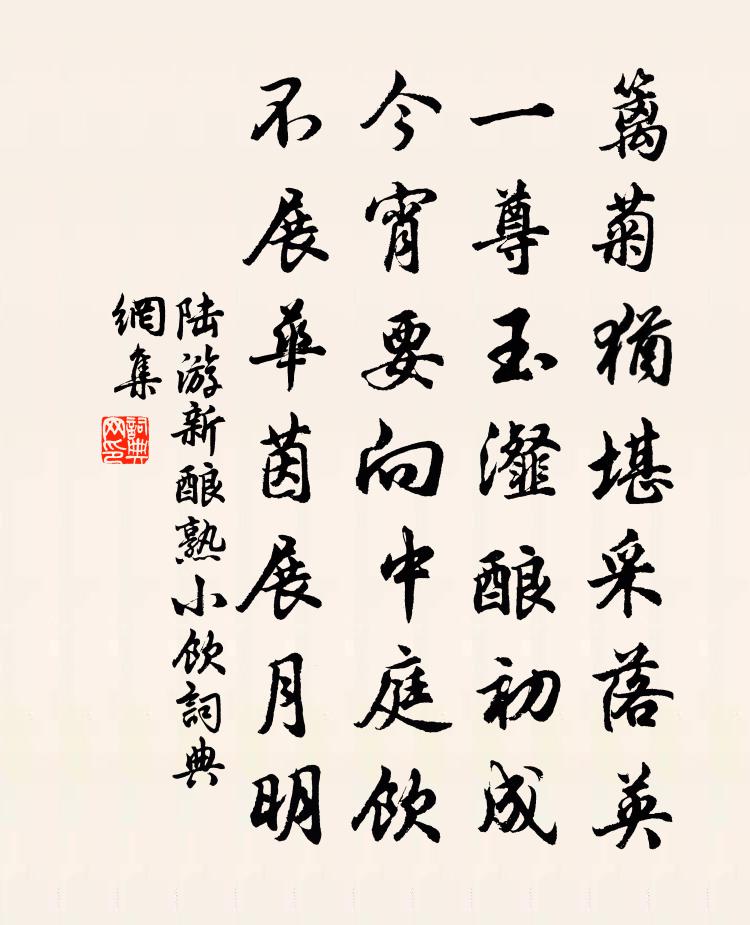 籬菊猶堪采落英
一尊玉瀣酿初成
今宵要向中庭飲
不展華茵展月明
陆游新酿熟小飲詞典
網集
詞典网印